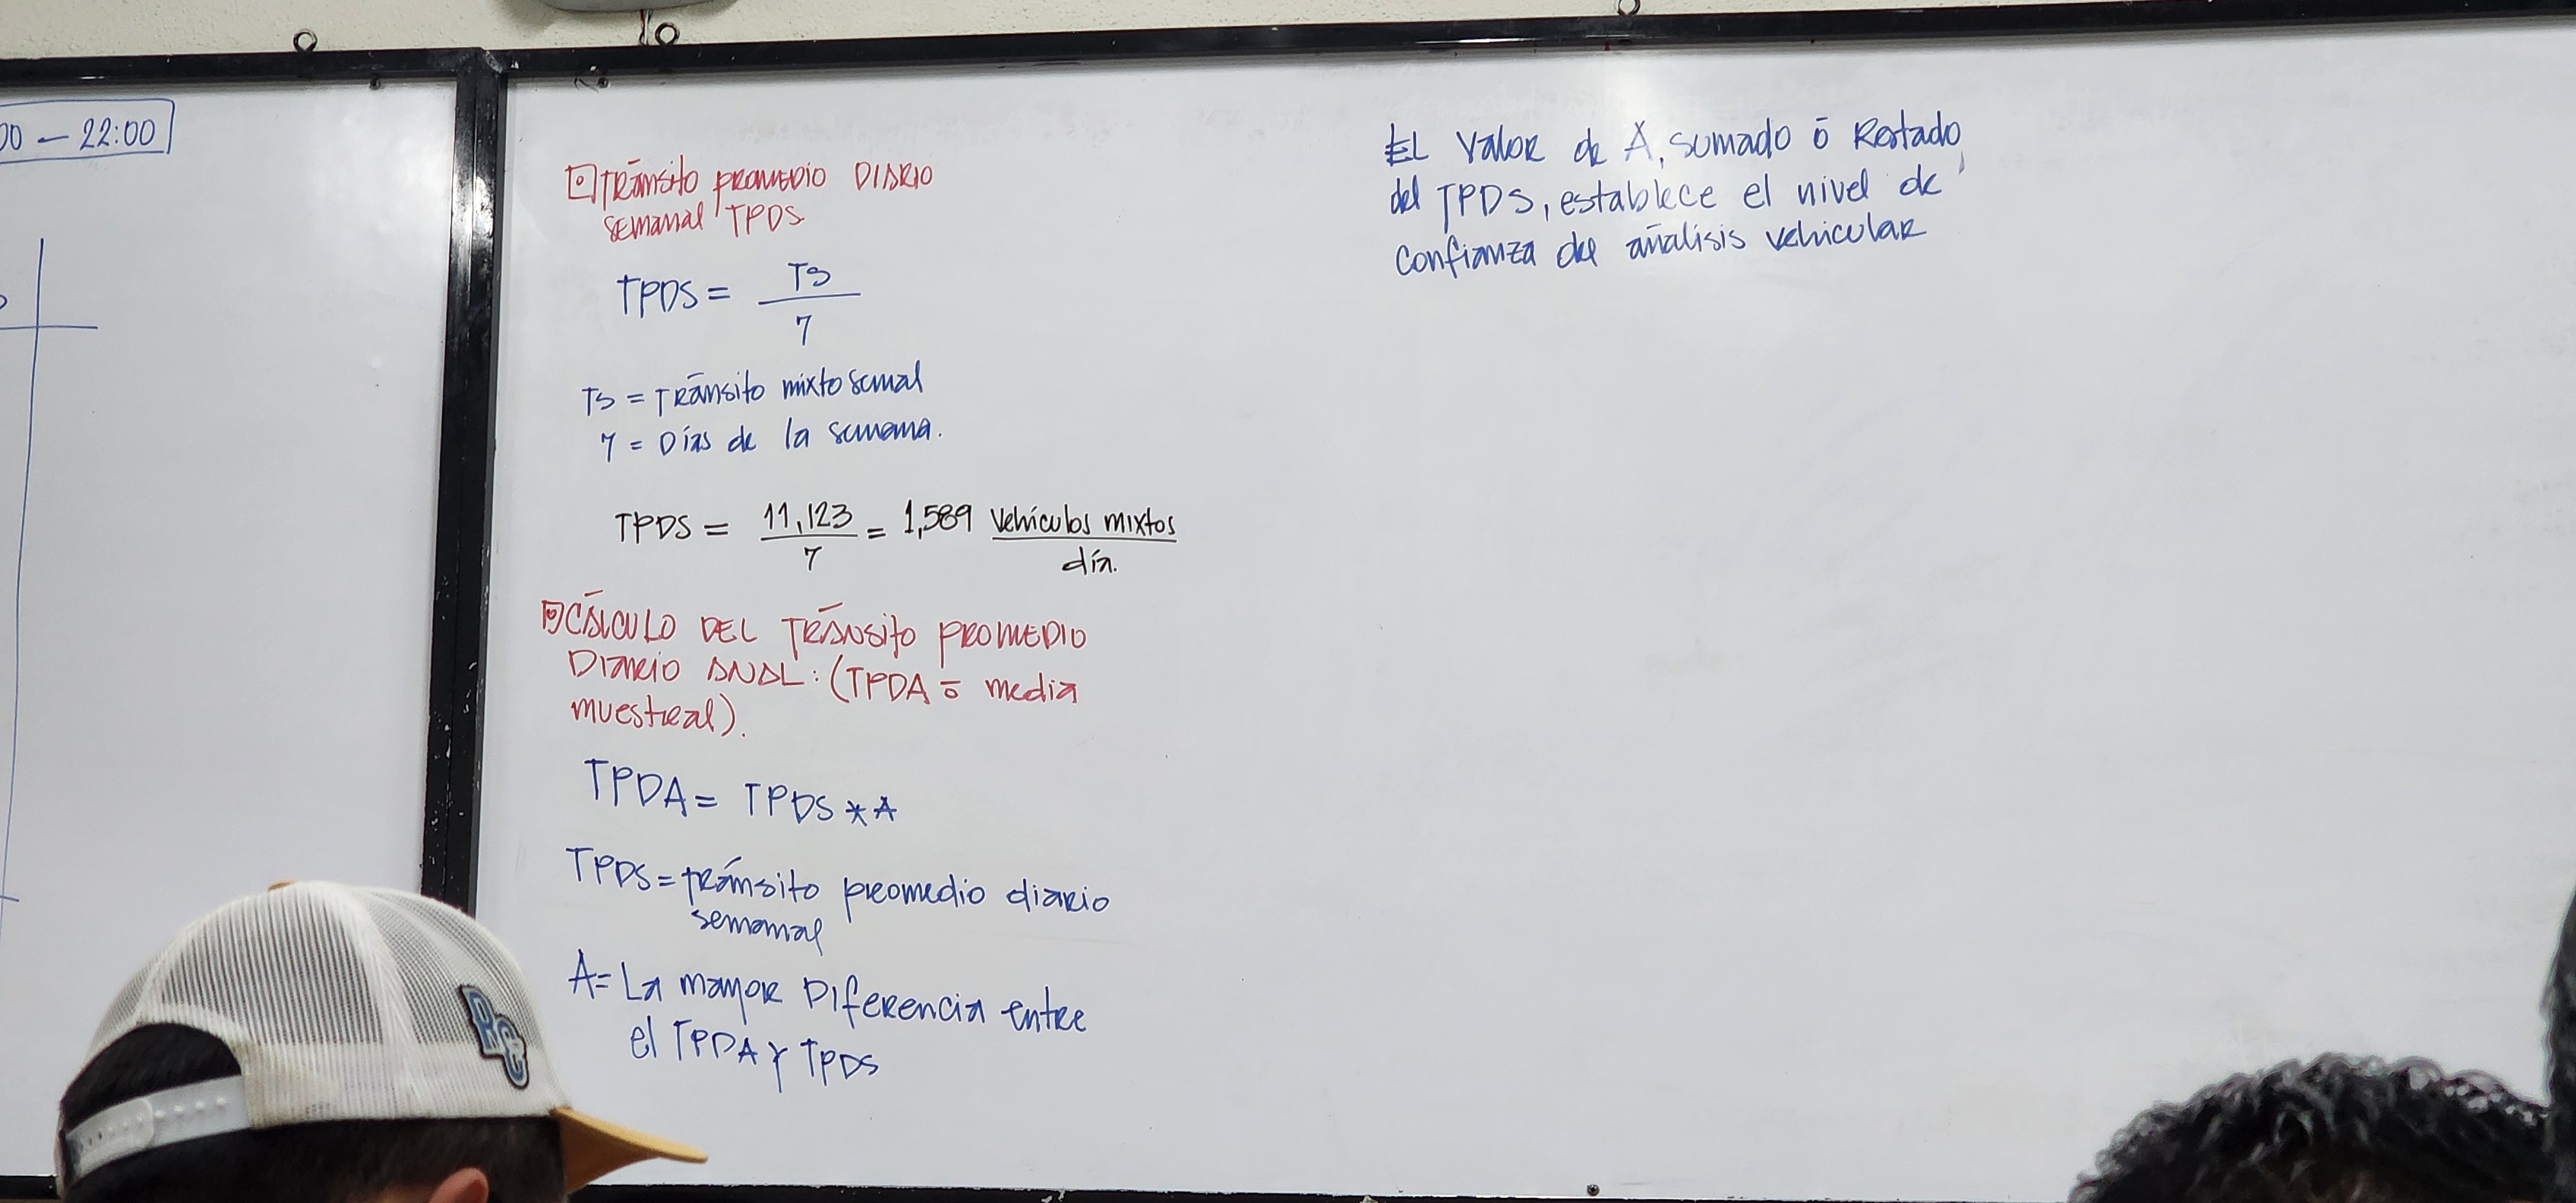 00 — 22:00
Tránsito promedio DIARIO
semanal TPDS
TPDS = TS
7
TS = Tránsito mixto semal
7 = Días de la semana.
TPDS = 11,123 = 1,589 vehículos mixtos
7 día.
CÁLCULO DEL TRÁNSITO PROMEDIO
DIARIO ANAL: (TPDA ó media
muestral).
TPDA = TPDS * A
TPDS = tránsito promedio diario
semanal
A = La mayor Diferencia entre
el TPDA y TPDS
El valor de A, sumado ó Restado
del TPDS, establece el nivel de
confianza del análisis vehicular
Re